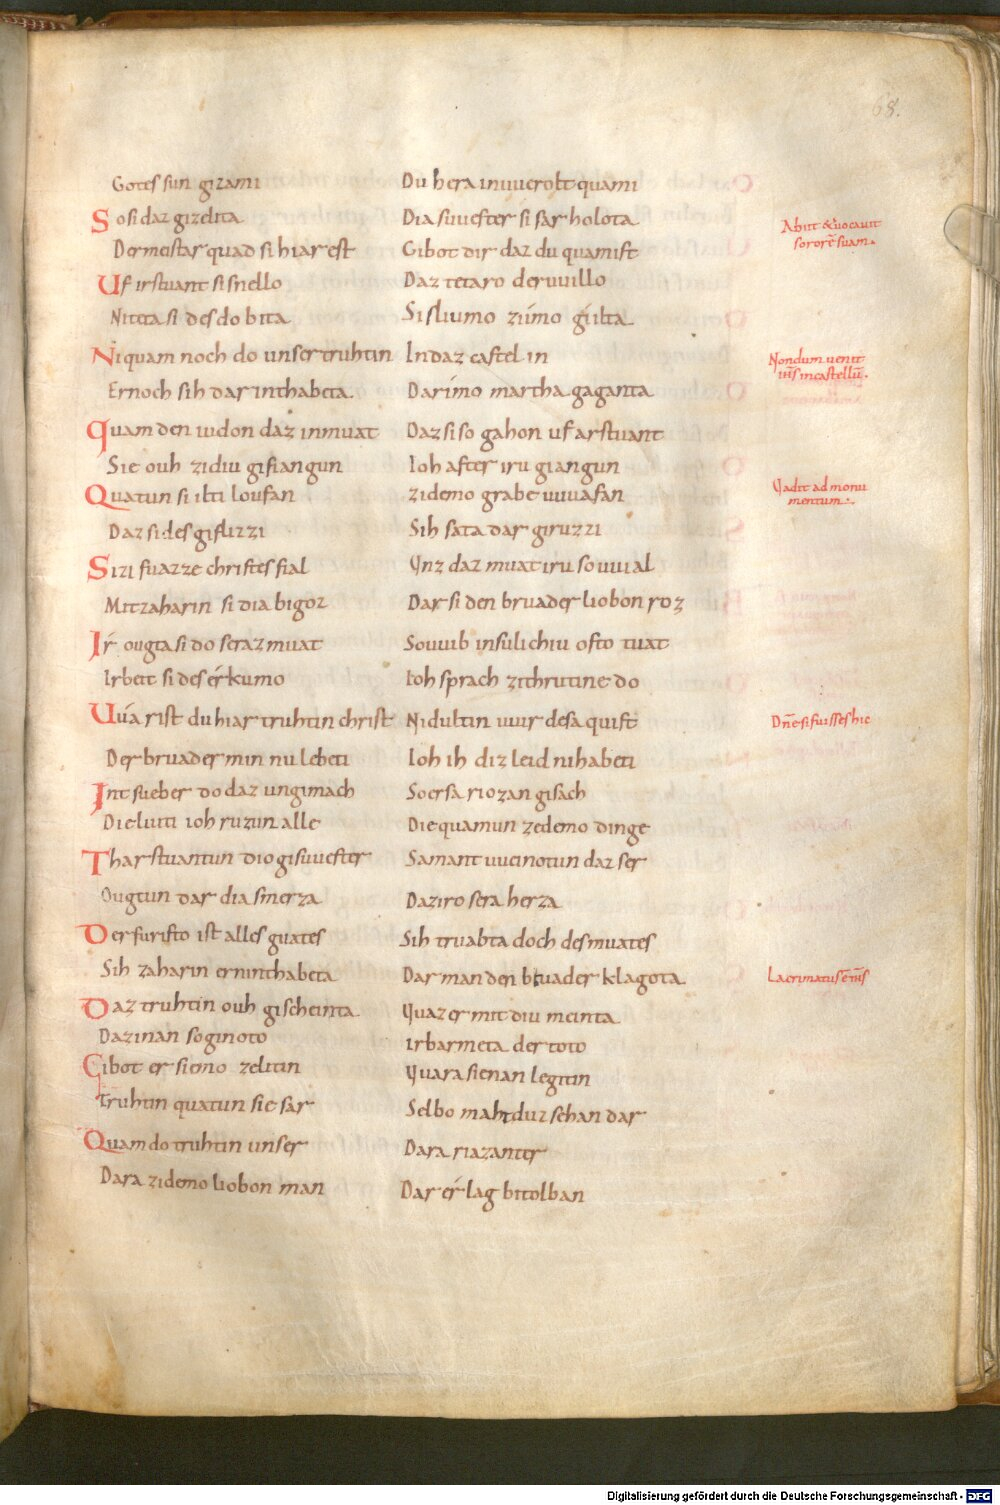 68.
Gotes sun gizami Du hera inuuerolt quami
Sosi daz gizelita Dia suuester si sar holota
Abiit & uocauit
sororē suam.
Dermeistar quad si hiar est Gibot dir daz du quamist
Uf irstuant si snello Daz tetaro der uuillo
Niteta si des do bita Si sliumo zi imo gi ilta
Niquam noch do unser truhtin In daz castel in
Nondum uenit
ihs in castellū.
Er noch sih dar inthabeta Dar imo martha gaganta
Quam den iudon daz inmuat Daz si so gahon uf arstuant
Sie ouh zi diu gifiangun Ioh after iru giangun
Quatun si ilti loufan zi demo grabe uuuafan
Uadit ad monu
mentum.
Daz si des gifluzzi Sih sata dar giruzzi
Si zi fuazze christes fial Unz daz muat iru so uuial
Mit zaharin si dia bigoz Dar si den bruader liobon roz
Ir ougta si do seraz muat So uuib in sulichiu ofto tuat
Irbeit si des er kumo Ioh sprach zithrutine do
Uuarist du hiar truhtin christ Nidultin uuir desa quist
Dñe si fuisses hic
Der bruader min nu lebeti Ioh ih diz leid nihabeti
Int sueber do daz ungimach So er sa riozan gisach
Die liuti ioh ruzun alle Die quamun zedemo dinge
Thar stuantun dio gisuuester Samant uueinotun daz ser
Ougtun dar dia smerza Daz iro sera herza
Der furisto ist alles guates Sih truabta doch des muates
Sih zaharin er ninthabeta Dar man den bruader klagota
Lacrimatus ē ihs
Daz truhtin ouh gischeinta Uuaz er mit diu meinta
Daz inan soginoto irbarmeta der toto
Gibot er si emo zelitin Uuara sie nan legitin
Truhtin quatun sie sar Selbo maht du iz sehan dar
Quam do truhtin unser Dara riazanter
Dara zi demo liobon man Dar er lag bitolban
Digitalisierung gefördert durch die Deutsche Forschungsgemeinschaft - DFG